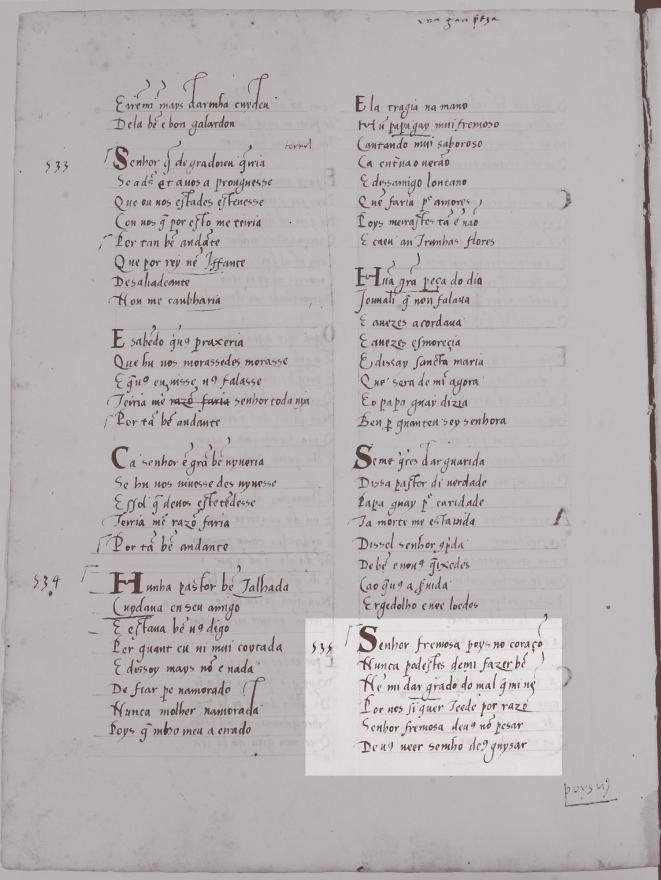 Senhor q̃ de gradoieu q̃ria
Se a ds̃ et a uos a prouguesse
Que ou uos estades esteuesse
Con uos q̃ por esto me terria
Por tan bẽ andãte
Que por rey nẽ Iffante
Desaliadeante
Non me canbharia
E sabẽdo q̃ uꝯ praxeria
Que hu uos morassedes morasse
E q̃ uꝯ eu uisse uꝯ falasse
Terria mẽ razõ faria senhor toda uya
Por tã bẽ andante
Ca senhor ẽ grã bẽ uyueria
Se hu uos uiuessedes uyuesse
E ssol q̃ de uos estẽdesse
Terria mẽ razõ faria
Por tã bẽ andante
534
Hunha pastor bẽ Talhada
Cuydaua en seu amigo
E estaua bẽ uꝯ digo
Per quant eu ui mui coytada
E dissoy mays nõ e nada
De fiar per namorado
Nunca molher namorada
Poys q̃ mho meu a errado
Ela tragia na mano
Hũ papagay mui fremoso
Cantando mui saboroso
Ca entraua o uerão
E dess amigo loncano
Que faria per amores
Poys m erastes tã ẽ uão
E caeu an Trunhas flores
Hũa grã peça do dia
Jouu ali q̃ non falaua
E a uezes acordaua
E a uezes esmorecia
E dissay sancta maria
Que sera de mĩ agora
E o papa guay dizia
Ben per quant eu sey senhora
Se me q̃res dar guarida
Dissa pastor di uerdade
Papa guay per caridade
Ca morte m e esta uida
Dissel senhor cõprida
De bẽ e nõ uꝯ q̃ixedes
Ca o q̃ uꝯ a seruida
Ergedolho e uee loedes
535
Senhor fremosa poys no coraçõ
Nunca posestes de mi fazer bẽ
Nẽ mi dar grado do mal q̃ mi uẽ
Por uos siquer Teede por razõ
Senhor fremosa de uꝯ nõ pesar
De uꝯ ueer se mho deꝯ guysar
poys uꝯ